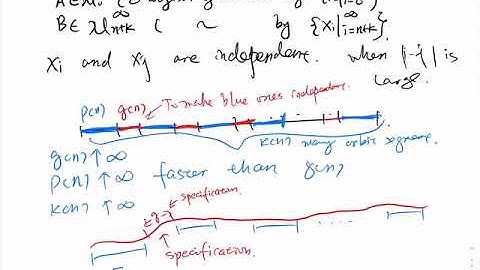 B∈ 𝓜|n+k ( ~ by {Xi|i=n+k}^∞.
Xi and Xj are independent. when |i-j| is
large.
p(n) g(n) To make blue ones independent.
k(n) many orbit segments.
g(n) ↑ ∞
p(n) ↑ ∞ faster than g(n)
k(n) ↑ ∞
specification.
specification.